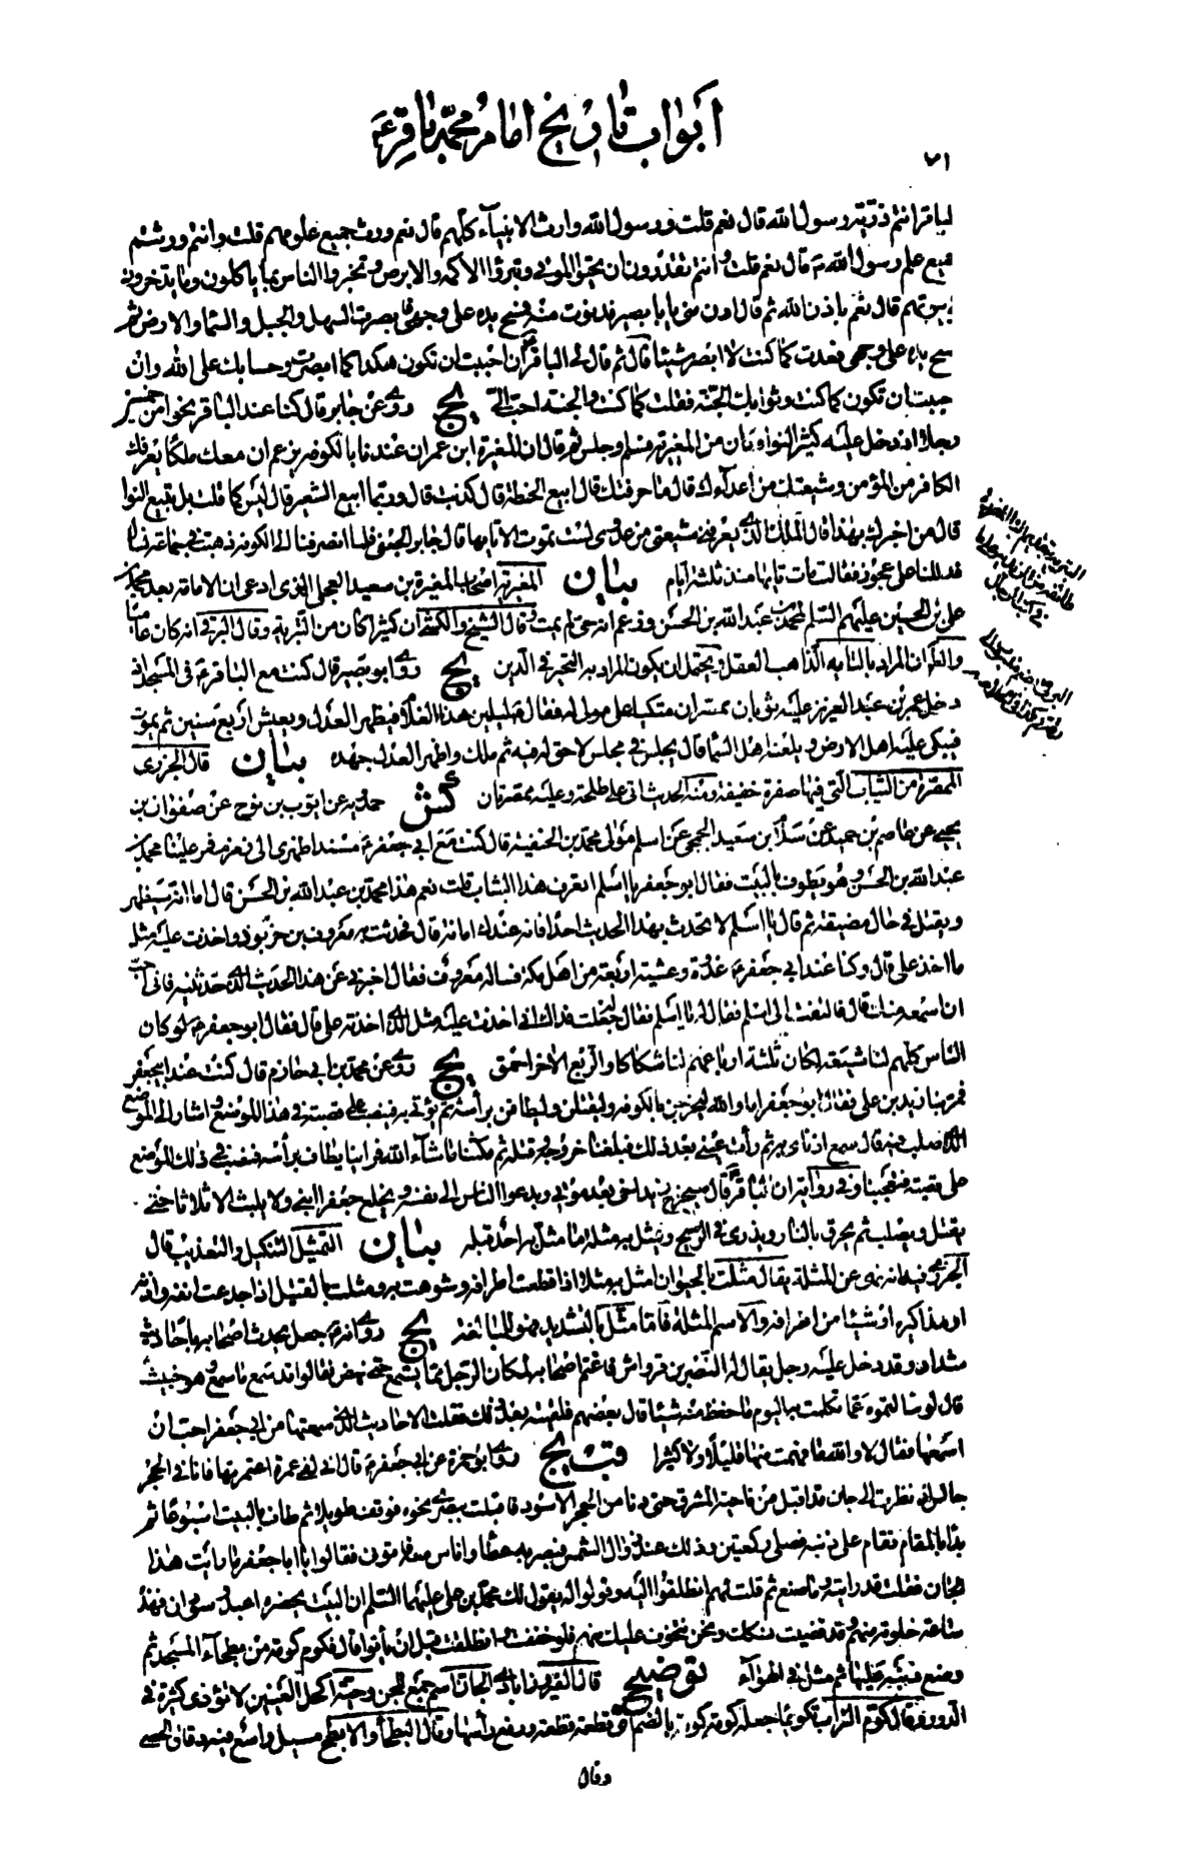 ابواب تاريخ امام محمد باقر ع
٧١
لباقر انتم ذرية رسول الله قال نعم قلت و رسول الله وارث الانبياء كلهم قال نعم ورث جميع علومهم قلت وانتم ورثتم
جميع علم رسول الله ص قال نعم قلت و انتم تقدرون ان تحيوا الموتى وتبرؤا الاكمه والابرص وتخبروا الناس بما ياكلون وما يدخرون
بيوتهم قال نعم باذن الله ثم قال ادن مني يا با بصير فدنوت منه فمسح يده على وجهي فابصرت السهل والجبل والسماء والارض ثم
سح يده على وجهي فعدت كما كنت لا ابصر شيئا قال ثم قال لي الباقر ان احببت ان تكون هكذا كما ابصرت وحسابك على الله وان
حببت ان تكون كما كنت وثوابك الجنة فقلت كما كنت والجنة احب الي يج روى عن جابر قال كنا عند الباقر نحوا من خمسين
رجلا اذ دخل عليه كثير النواء وكان من المغيرية فسلم وجلس ثم قال ان المغيرة ابن عمران عندنا بالكوفة يزعم ان معك ملكا يعرفك
الكافر من المؤمن وشيعتك من اعدآءك قال ما حرفتك قال ابيع الحنطة قال كذبت قال وربما ابيع الشعير قال ليس كما قلت بل تبيع النوا
قال من اخبرك بهذا قال الملك الذى يعرفني شيعتي من عدوي لست تموت الا تايها قال جابر الجعفي فلما انصرفنا الى الكوفة ذهبت في جماعة نسال
فدللنا على عجوز فقالت مات تايها منذ ثلثة ايام بيان المغيرية اصحاب المغيرة بن سعيد العجلى الذى ادعى ان الامامة بعد محمد بن
على بن الحسين عليهم السلم لمحمد بن عبد الله بن الحسن وزعم انه حي لم يمت وقال الشيخ والكشى ان كثيرا كان من البترية وقال البرقي انه كان عاميا
والظ ان المراد بالتايه الذاهب العقل ويحتمل ان يكون المراد به التحير في الدين يج روى ابو بصير قال كنت مع الباقر ع في المسجد اذ
دخل عمر بن عبد العزيز عليه ثوبان ممصران متكيا على مولى له فقال ع ليلين هذا الغلام فيظهر العدل ويعيش اربع سنين ثم يموت
فيبكى عليه اهل الارض ويلعنه اهل السماء قال يجلس في مجلس لا حق له فيه ثم ملك واظهر العدل جهده بيان قال الجزرى
الممصرة من الثياب التي فيها صفرة خفيفة ومنه الحديث اتى على طلحة وعليه ممصرتان كش حمدويه عن ايوب بن نوح عن صفوان بن
يحيى عن عاصم بن حميد عن سلام بن سعيد الجمحى عن اسلم مولى محمد بن الحنفية قال كنت مع ابي جعفر ع مسندا ظهرى الى زمزم فمر علينا محمد بن
عبد الله بن الحسن وهو يطوف بالبيت فقال ابو جعفر يا اسلم اتعرف هذا الشاب قلت نعم هذا محمد بن عبد الله بن الحسن قال اما انه سيظهر
ويقتل في حال مضيقة ثم قال يا اسلم لا تحدث بهذا الحديث احدا فانه عندك امانة قال فحدثت به معروف بن خربوذ واخذت عليه مثل
ما اخذ على قال وكنا عند ابي جعفر ع غدوة وعشية اربعة من اهل مكة فساله معروف فقال اخبرني عن هذا الحديث الذى حدثنيه فاني احب
ان اسمعه منك قال فالتفت الى اسلم فقال له يا اسلم فقال جعلت فداك اني اخذت عليه مثل الذى اخذته على قال فقال ابو جعفر ع لو كان
الناس كلهم لنا شيعة لكان ثلثة ارباعهم لنا شكاكا والربع الاخر احمق يج روى عن محمد بن ابي حازم قال كنت عند ابيجعفر
فمر بنا زيد بن على فقال ابو جعفر اما والله ليخرجن بالكوفة وليقتلن وليطافن برأسه ثم يؤتى به فينصب على قصبة في هذا الموضع و اشار الى الموضع
الذى صلب فيه قال سمع اذناى به ثم رأت عيني بعد ذلك فبلغنا خروجه وقتله ثم مكثنا ما شآء الله فراينا يطاف برأسه فنصب في ذلك الموضع
على قصبة فتعجبنا وفي رواية ان الباقر ع قال سيخرج زيد اخى بعد موتي ويدعوا الناس الى نفسه ويخلع جعفرا ابني ولا يلبث الا ثلاثا حتى
يقتل ويصلب ثم يحرق بالنار ويذرى في الريح ويمثل به مثلة ما مثل بها احد قبله بيان التمثيل التنكيل والتعذيب قال
الجزرى فيه انه نهى عن المثلة يقال مثلت بالحيوان امثل به مثلا اذا قطعت اطرافه وشوهت به ومثلت بالقتيل اذا جدعت انفه واذنه
او مذاكيره او شيئا من اطرافه والاسم المثلة فاما مثل بالتشديد فهو للمبالغة يج روى انه ع جعل يحدث اصحابه باحاديث
شداد وقد دخل عليه رجل يقال له النضر بن قرواش فاغتم اصحابه لمكان الرجل مما يستمع حتى نهض فقالوا قد سمع ما سمع وهو خبيث
قال لو سالتموه عما تكلمت به اليوم ما حفظ منه شيئا قال بعضهم فلقيته بعد ذلك فقلت الاحاديث التي سمعتها من ابي جعفر احب ان
اسمعها فقال لا والله ما فهمت منها قليلا ولا كثيرا قب يج روى ابو حمزة عن ابي جعفر ع قال اني لفي عمرة اعتمرتها فانا في الحجر
جالس اذ نظرت الى جان قد اقبل من ناحية المشرق حتى دنا من الحجر الاسود فاقبلت ببصرى نحوه فوقف طويلا ثم طاف بالبيت اسبوعا ثم
بدا بالمقام فقام على ذنبه فصلى ركعتين وذلك عند زوال الشمس فبصر به عطاء واناس معه فاتوني فقالوا يا ابا جعفر ما رايت هذا
الجان فقلت قد رايته وما صنع ثم قلت لهم انطلقوا اليه وقولوا له يقول لك محمد بن على عليهما السلم ان البيت يحضره اعبد وسودان فهذه
ساعة خلوته منهم وقد قضيت نسكك ونحن نتخوف عليك منهم فلو خففت وانطلقت قبل ان ياتوا قال فكوم كومة من بطحآء المسجد ثم
وضع ذنبه عليها ثم مثل في الهوآء توضيح قال الفيروزابادى الجان اسم جمع للجن وحية اكحل العينين لا تؤذى كثيرة في
الدور وقال كوم التراب تكويما جعله كومة كومة بالضم اى قطعة قطعة ورفع رأسها وقال البطحآء والابطح مسيل واسع فيه دقاق الحصى
وقال